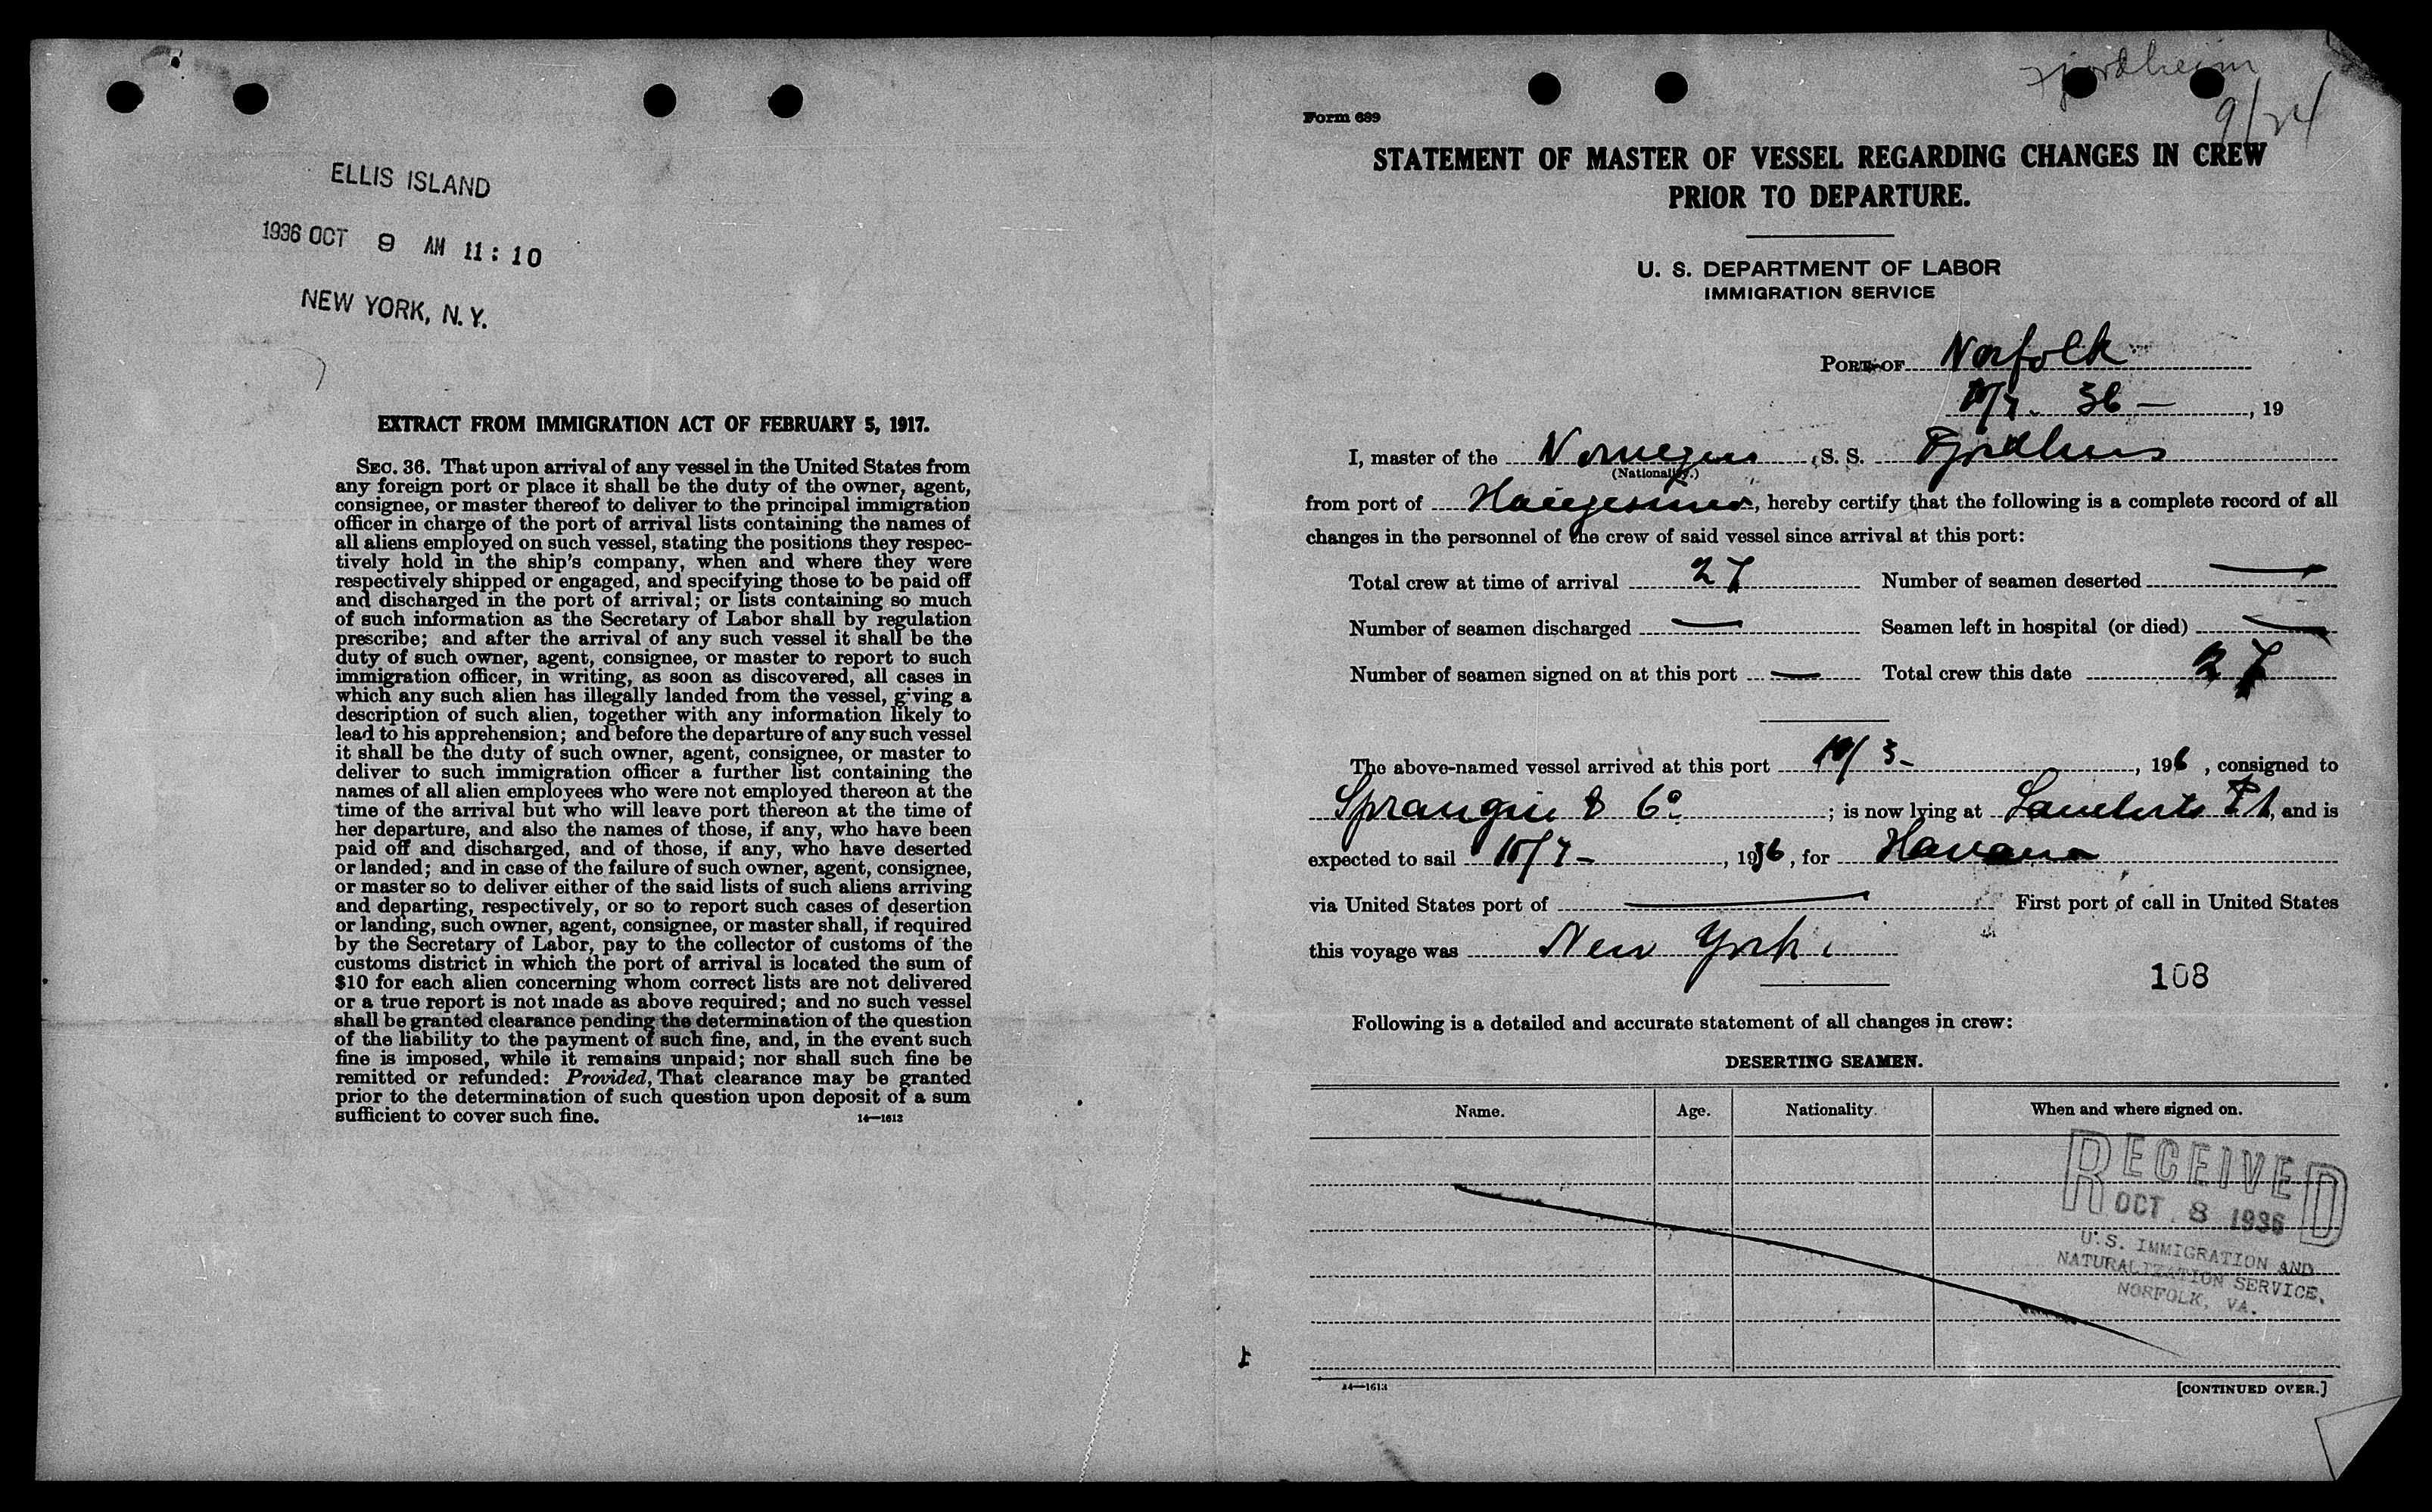 ELLIS ISLAND
1936 OCT 9 AM 11:10
NEW YORK, N.Y.
EXTRACT FROM IMMIGRATION ACT OF FEBRUARY 5, 1917.
SEC. 36. That upon arrival of any vessel in the United States from
any foreign port or place it shall be the duty of the owner, agent,
consignee, or master thereof to deliver to the principal immigration
officer in charge of the port of arrival lists containing the names of
all aliens employed on such vessel, stating the positions they respec-
tively hold in the ship's company, when and where they were
respectively shipped or engaged, and specifying those to be paid off
and discharged in the port of arrival; or lists containing so much
of such information as the Secretary of Labor shall by regulation
prescribe; and after the arrival of any such vessel it shall be the
duty of such owner, agent, consignee, or master to report to such
immigration officer, in writing, as soon as discovered, all cases in
which any such alien has illegally landed from the vessel, giving a
description of such alien, together with any information likely to
lead to his apprehension; and before the departure of any such vessel
it shall be the duty of such owner, agent, consignee, or master to
deliver to such immigration officer a further list containing the
names of all alien employees who were not employed thereon at the
time of the arrival but who will leave port thereon at the time of
her departure, and also the names of those, if any, who have been
paid off and discharged, and of those, if any, who have deserted
or landed; and in case of the failure of such owner, agent, consignee,
or master so to deliver either of the said lists of such aliens arriving
and departing, respectively, or so to report such cases of desertion
or landing, such owner, agent, consignee, or master shall, if required
by the Secretary of Labor, pay to the collector of customs of the
customs district in which the port of arrival is located the sum of
$10 for each alien concerning whom correct lists are not delivered
or a true report is not made as above required; and no such vessel
shall be granted clearance pending the determination of the question
of the liability to the payment of such fine, and, in the event such
fine is imposed, while it remains unpaid; nor shall such fine be
remitted or refunded: Provided, That clearance may be granted
prior to the determination of such question upon deposit of a sum
sufficient to cover such fine. 14—1613
Fjordheim
9/24
Form 689
STATEMENT OF MASTER OF VESSEL REGARDING CHANGES IN CREW
PRIOR TO DEPARTURE.
U. S. DEPARTMENT OF LABOR
IMMIGRATION SERVICE
PORT OF Norfolk
10/7. 36 —, 19
I, master of the Norwegian S. S. Fjordheim
(Nationality.)
from port of Haugesund, hereby certify that the following is a complete record of all
changes in the personnel of the crew of said vessel since arrival at this port:
Total crew at time of arrival 27 Number of seamen deserted —
Number of seamen discharged — Seamen left in hospital (or died) —
Number of seamen signed on at this port — Total crew this date 27
The above-named vessel arrived at this port 10/3 -, 196, consigned to
Sprague & Co; is now lying at Lamberts Pt, and is
expected to sail 10/7 -, 1936, for Havana
via United States port of — First port of call in United States
this voyage was New York
108
Following is a detailed and accurate statement of all changes in crew:
DESERTING SEAMEN.
Name. Age. Nationality. When and where signed on.
RECEIVED
OCT 8 1936
U.S. IMMIGRATION AND
NATURALIZATION SERVICE,
NORFOLK, VA.
14—1613 [CONTINUED OVER.]